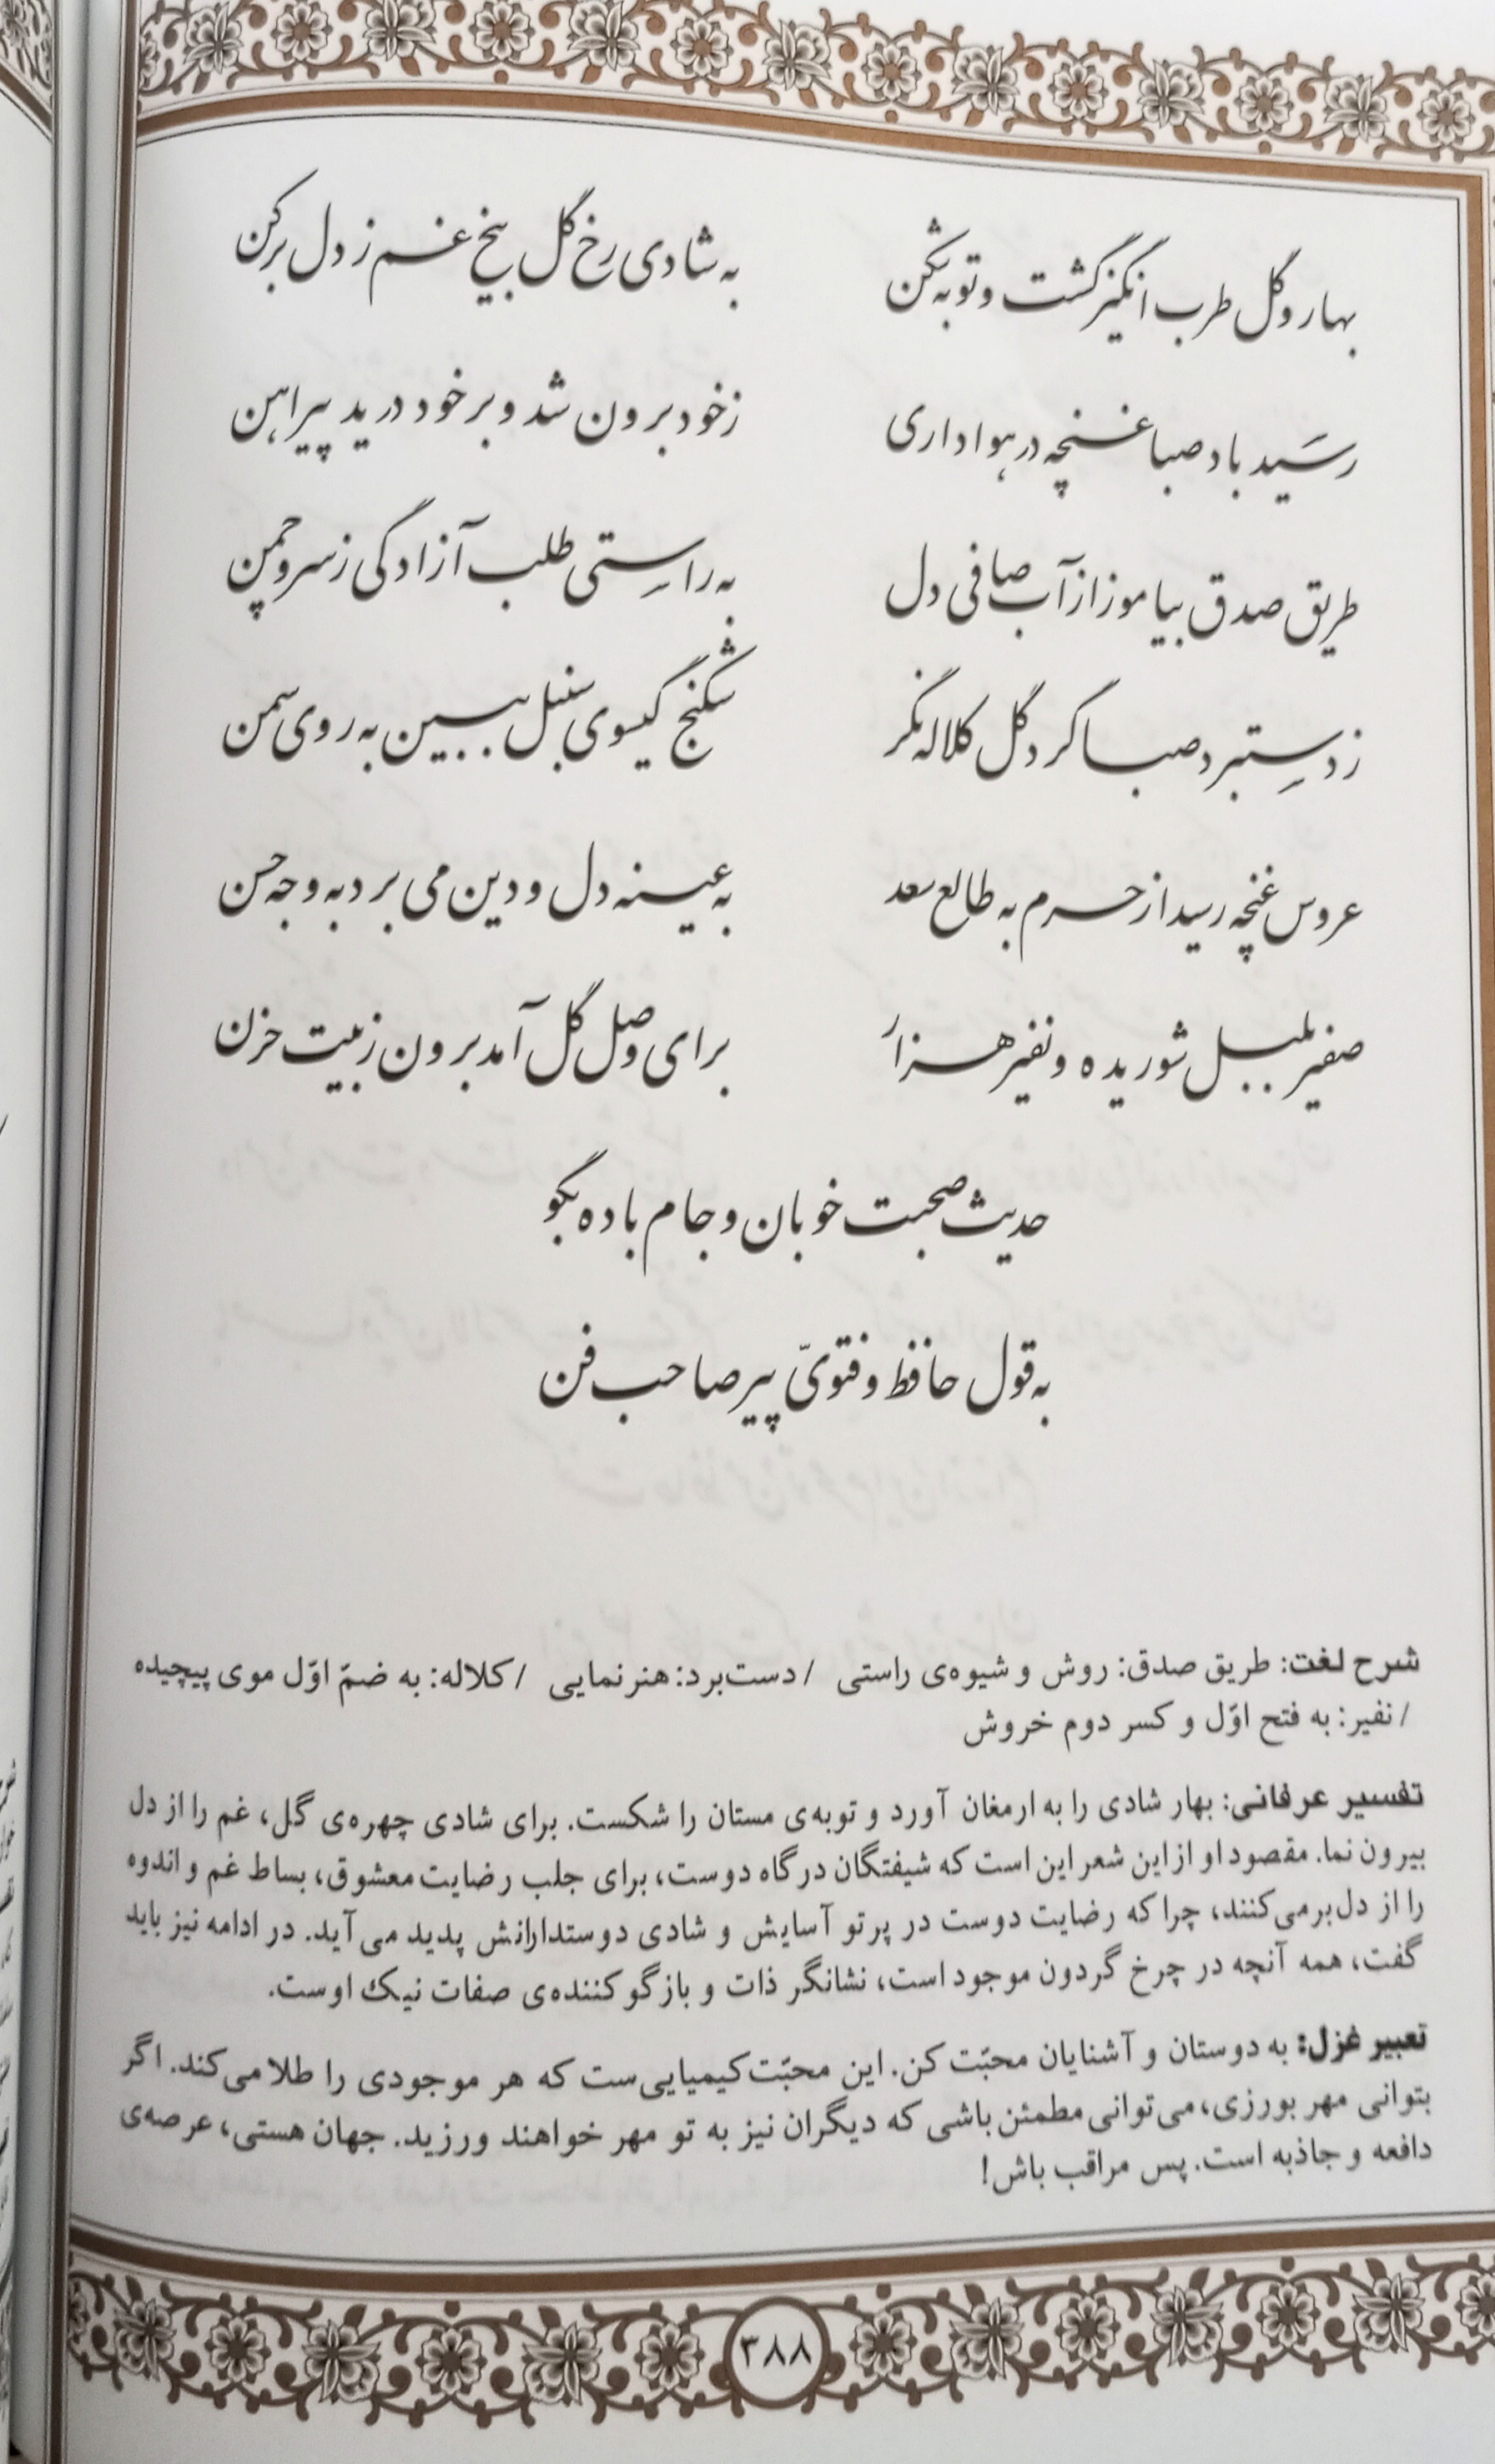 بهار و گل طرب انگیز گشت و توبه شکن
به شادی رخ گل بیخ غم ز دل برکن
رسید باد صبا غنچه در هواداری
ز خود برون شد و بر خود درید پیراهن
طریق صدق بیاموز از آب صافی دل
به راستی طلب آزادگی ز سرو چمن
ز دستبرد صبا گرد گل کلاله نگر
شکنج گیسوی سنبل ببین به روی سمن
عروس غنچه رسید از حرم به طالع سعد
به عینه دل و دین می برد به وجه حسن
صفیر بلبل شوریده و نفیر هزار
برای وصل گل آمد برون ز بیت حزن
حدیث صحبت خوبان و جام باده بگو
به قول حافظ و فتویّ پیر صاحب فن
شرح لغت: طریق صدق: روش و شیوه‌ی راستی / دست‌برد: هنرنمایی / کلاله: به ضمّ اوّل موی پیچیده
/ نفیر: به فتح اوّل و کسر دوم خروش
تفسیر عرفانی: بهار شادی را به ارمغان آورد و توبه‌ی مستان را شکست. برای شادی چهره‌ی گل، غم را از دل
بیرون نما. مقصود او از این شعر این است که شیفتگان درگاه دوست، برای جلب رضایت معشوق، بساط غم و اندوه
را از دل برمی‌کنند، چرا که رضایت دوست در پرتو آسایش و شادی دوستدارانش پدید می‌آید. در ادامه نیز باید
گفت، همه آنچه در چرخ گردون موجود است، نشانگر ذات و بازگوکننده‌ی صفات نیک اوست.
تعبیر غزل: به دوستان و آشنایان محبّت کن. این محبّت کیمیایی‌ست که هر موجودی را طلا می‌کند. اگر
بتوانی مهر بورزی، می‌توانی مطمئن باشی که دیگران نیز به تو مهر خواهند ورزید. جهان هستی، عرصه‌ی
دافعه و جاذبه است. پس مراقب باش!
۳۸۸